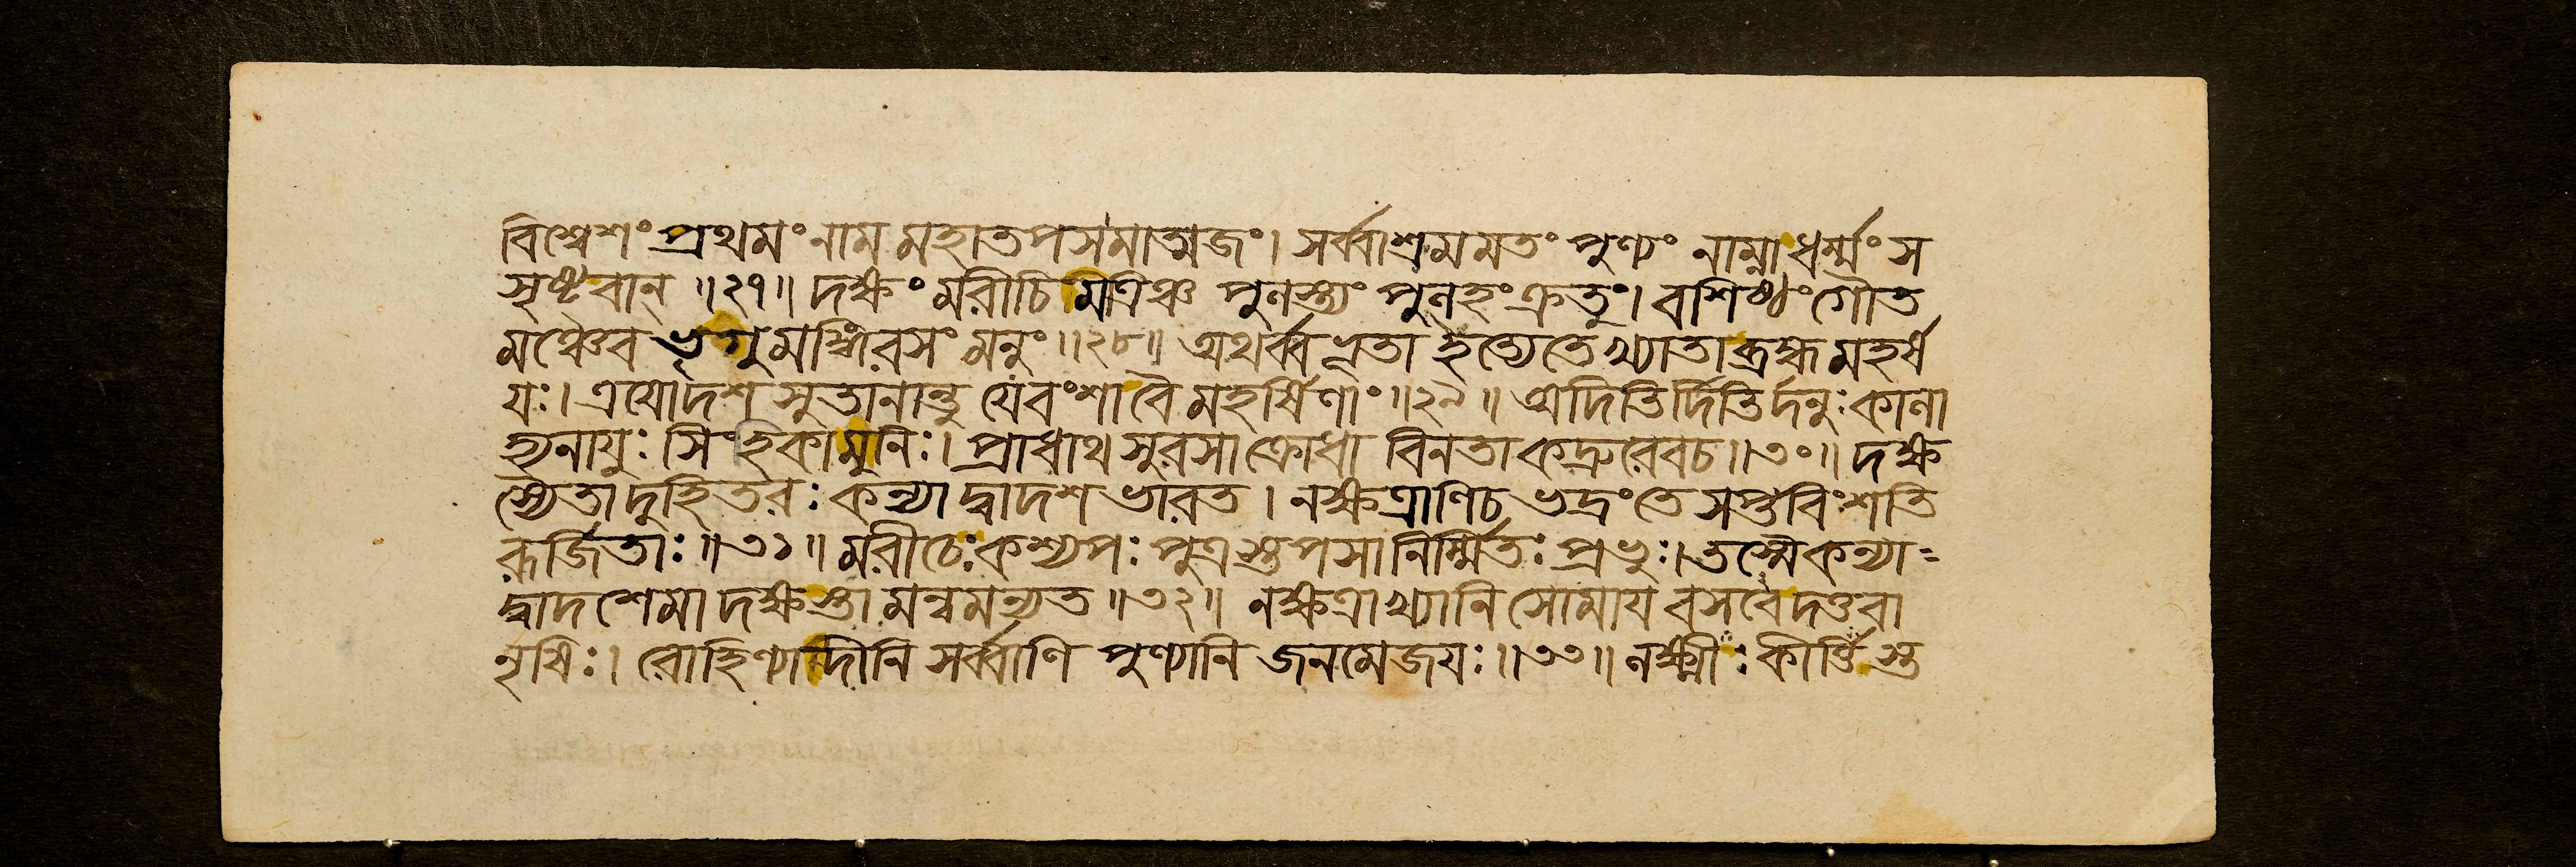 বিশ্বেশং প্রথমং নাম মহাতপসমাত্মজং। সর্ব্বাশ্রমমতং পুণ্যং নাম্না ধর্ম্মং স
সৃষ্টবান্ ॥২৭॥ দক্ষং মরীচিমত্রিঞ্চ পুলস্ত্যং পুলহং ক্রতুং। বশিষ্ঠং গৌত
মঞ্চৈব ভৃগুমঙ্গিরসং মনুং ॥২৮॥ অথর্ব্বভূতা ইত্যেতে খ্যাতা ব্রহ্মমহর্ষ
য়ঃ। ত্রয়োদশ সুতানান্তু যে বংশা বৈ মহর্ষিণাং ॥২৯॥ অদিতির্দিতির্দনুঃ কালা
হ্যনায়ুঃ সিংহিকা মুনিঃ। প্রাধাথ সুরসা ক্রোধা বিনতা কদ্রুরেবচ ॥৩০॥ দক্ষ
স্যৈতা দুহিতরঃ কন্যা দ্বাদশ ভারত। নক্ষত্রাণিচ ভদ্রং তে সপ্তবিংশতি
রূর্জিতাঃ ॥৩১॥ মরীচেঃ কশ্যপঃ পুত্রস্তপসা নির্ম্মিতঃ প্রভুঃ। তস্মৈ কন্যা=
দ্বাদশেমা দক্ষস্তা মন্বমন্যত ॥৩২॥ নক্ষত্রাখ্যানি সোমায় বসবে দত্তবা
নৃষিঃ। রোহিণ্যাদীনি সর্ব্বাণি পুণ্যানি জনমেজয়ঃ ॥৩৩॥ লক্ষ্মীঃ কীর্ত্তিস্ত